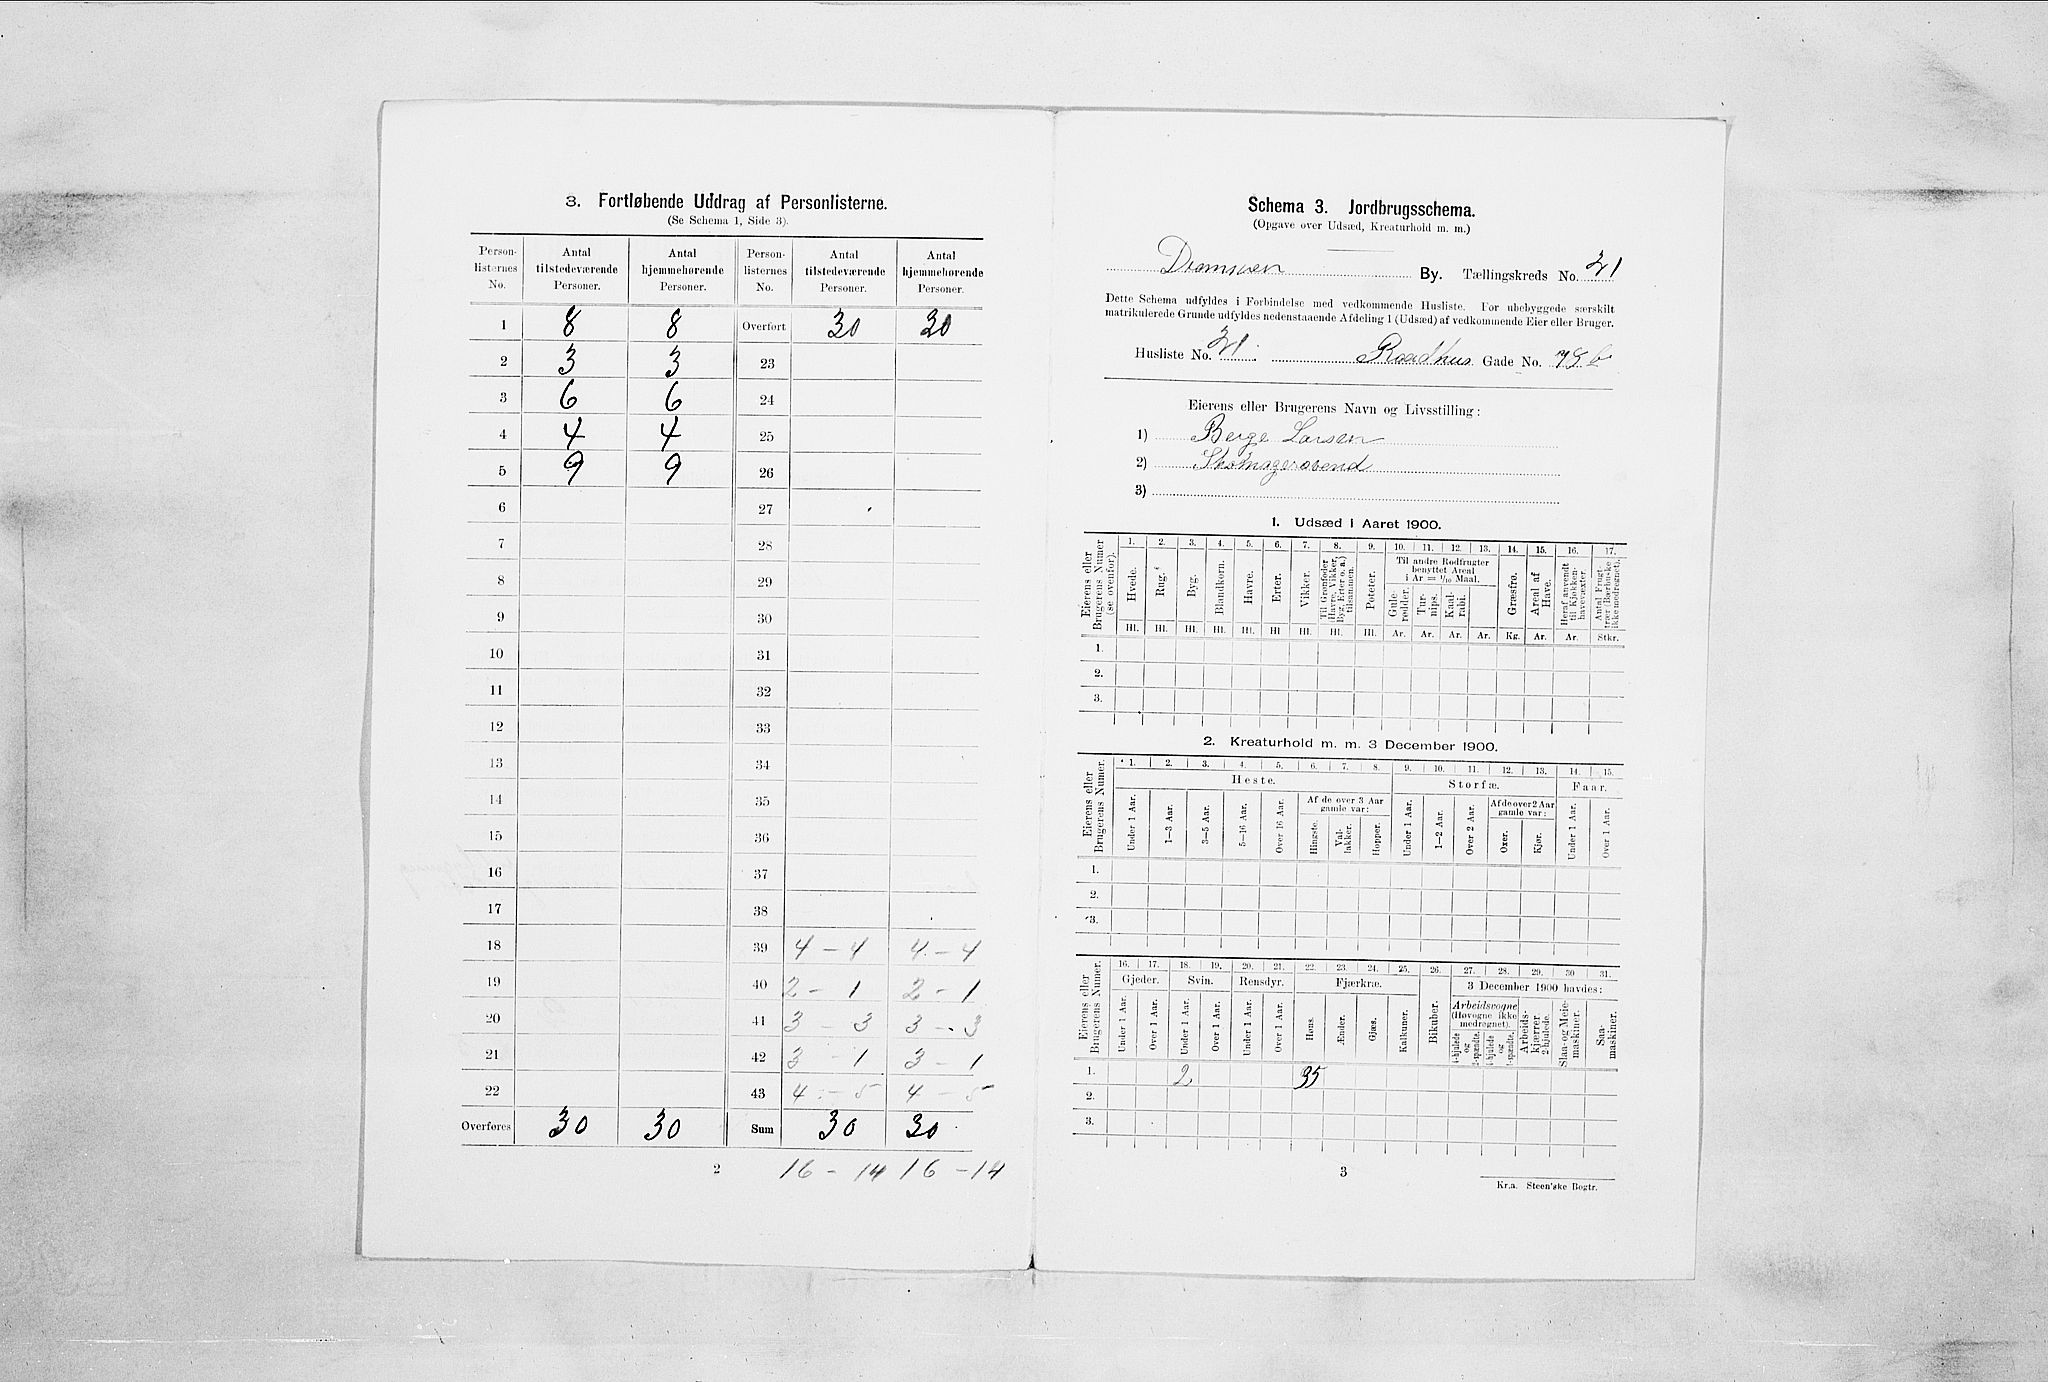 3. Fortløbende Uddrag af Personlisterne.
(Se Schema 1, Side 3).
Person-listernes No. | Antal tilstedeværende Personer. | Antal hjemmehørende Personer. | Person-listernes No. | Antal tilstedeværende Personer. | Antal hjemmehørende Personer.
1 | 8 | 8 | Overført | 30 | 30
2 | 3 | 3 | 23
3 | 6 | 6 | 24
4 | 4 | 4 | 25
5 | 9 | 9 | 26
6 | 27
7 | 28
8 | 29
9 | 30
10 | 31
11 | 32
12 | 33
13 | 34
14 | 35
15 | 36
16 | 37
17 | 38
18 | 39 | 4 - 4 | 4 - 4
19 | 40 | 2 - 1 | 2 - 1
20 | 41 | 3 - 3 | 3 - 3
21 | 42 | 3 - 1 | 3 - 1
22 | 43 | 4 - 5 | 4 - 5
Overføres | 30 | 30 | Sum | 30 | 30
2 | 16 - 14 | 16 - 14
Schema 3. Jordbrugsschema.
(Opgave over Udsæd, Kreaturhold m. m.)
Drammen By. Tællingskreds No. 21
Dette Schema udfyldes i Forbindelse med vedkommende Husliste. For ubebyggede særskilt
matrikulerede Grunde udfyldes nedenstaaende Afdeling 1 (Udsæd) af vedkommende Eier eller Bruger.
Husliste No. 21. Raadhus Gade No. 78 b
Eierens eller Brugerens Navn og Livsstilling:
1) Berge Larsen
2) Skomagersvend
3)
1. Udsæd i Aaret 1900.
Eierens eller Brugerens Numer (se ovenfor).
1. 2. 3. 4. 5. 6. 7. 8. 9. 10. 11. 12. 13. 14. 15. 16. 17.
Til andre Rodfrugter benyttet Areal i Ar = 1/10 Maal.
Hvede. | Rug. | Byg. | Blandkorn. | Havre. | Erter. | Vikker. | Til Grønfoder (Havre, Vikker, Byg, Erter o. a.) tilsammen. | Poteter. | Gulerødder. | Turnips. | Kaalrabi. | Græsfrø. | Areal af Have. | Heraf anvendt til Kjøkkenhavevæxter. | Antal Frugttrær (Bærbuske ikke medregnet).
Hl. Hl. Hl. Hl. Hl. Hl Hl. Hl. Hl. Ar. Ar. Ar. Ar. Kg. Ar. Ar. Stkr.
1.
2.
3.
2. Kreaturhold m. m. 3 December 1900.
Eierens eller Brugerens Numer.
1. 2. 3. 4. 5. 6. 7. 8. 9. 10. 11. 12. 13. 14. 15.
Heste. | Storfæ. | Faar.
Af de over 3 Aar gamle var: | Af de over 2 Aar gamle var:
Under 1 Aar. | 1—3 Aar. | 3—5 Aar. | 5—16 Aar. | Over 16 Aar. | Hingste. | Vallakker. | Hopper. | Under 1 Aar. | 1—2 Aar. | Over 2 Aar. | Oxer. | Kjør. | Under 1 Aar. | Over 1 Aar.
1.
2.
3.
Eierens eller Brugerens Numer.
16. 17. 18. 19. 20. 21. 22. 23. 24. 25. 26. 27. 28. 29. 30 31.
Gjeder. | Svin. | Rensdyr. | Fjærkræ. | 3 December 1900 havdes:
Arbeidsvogne (Høvogne ikke medregnet).
Under 1 Aar. | Over 1 Aar. | Under 1 Aar. | Over 1 Aar. | Under 1 Aar. | Over 1 Aar. | Høns. | Ænder. | Gjæs. | Kalkuner. | Bikuber. | 4-hjulede og 2-spændte. | 4-hjulede og 1-spændte. | Arbeidskjærrer 2-hjulede. | Slaa- og Meiemaskiner. | Saamaskiner.
1. | 2 | 35
2.
3.
3
Kr.a. Steen'ske Bogtr.